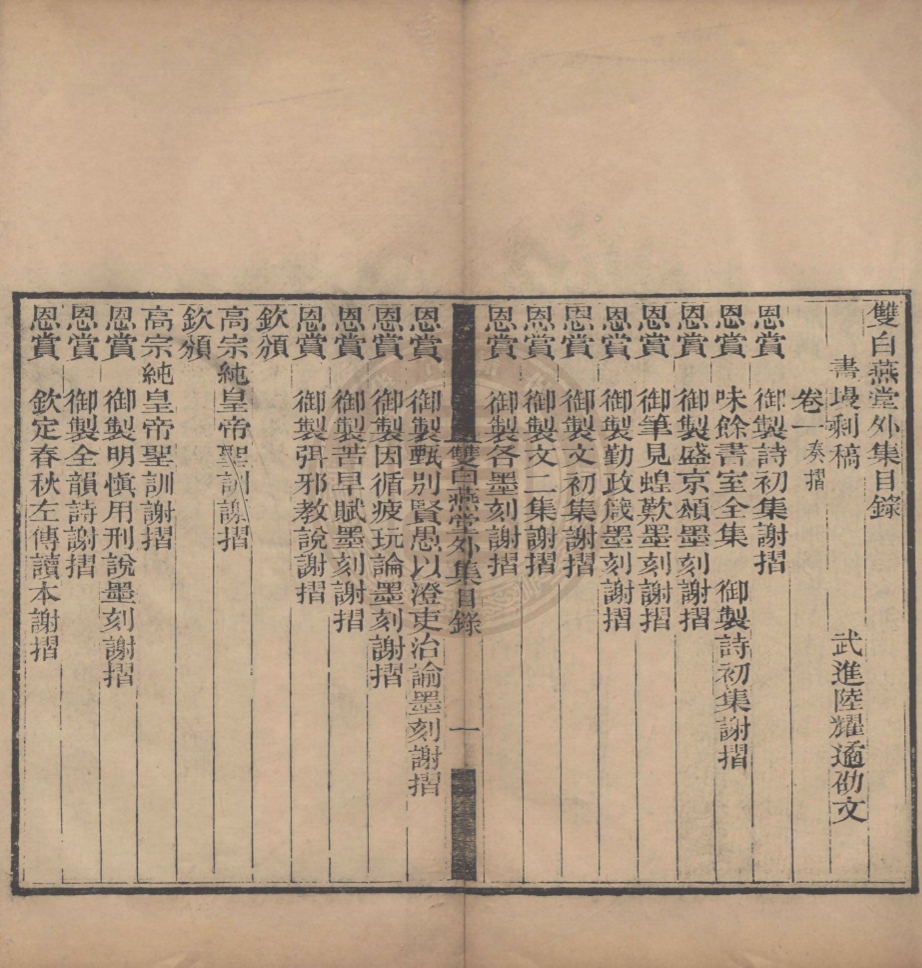 雙白燕堂外集目錄
書塲剩稿　武進陸耀遹劭文
卷一奏摺
恩賞　御製詩初集謝摺
恩賞　味餘書室全集　御製詩初集謝摺
恩賞　御製盛京頌墨刻謝摺
恩賞　御筆見蝗歎墨刻謝摺
恩賞　御製勤政箴墨刻謝摺
恩賞　御製文初集謝摺
恩賞　御製文二集謝摺
恩賞　御製各墨刻謝摺
雙白燕堂外集目錄　一
恩賞　御製甄別賢愚以澄吏治諭墨刻謝摺
恩賞　御製因循疲玩論墨刻謝摺
恩賞　御製苦旱賦墨刻謝摺
恩賞　御製弭邪教說謝摺
欽頒
高宗純皇帝聖訓謝摺
欽頒
高宗純皇帝聖訓謝摺
恩賞　御製明慎用刑說墨刻謝摺
恩賞　御製全韻詩謝摺
恩賞　欽定春秋左傳讀本謝摺